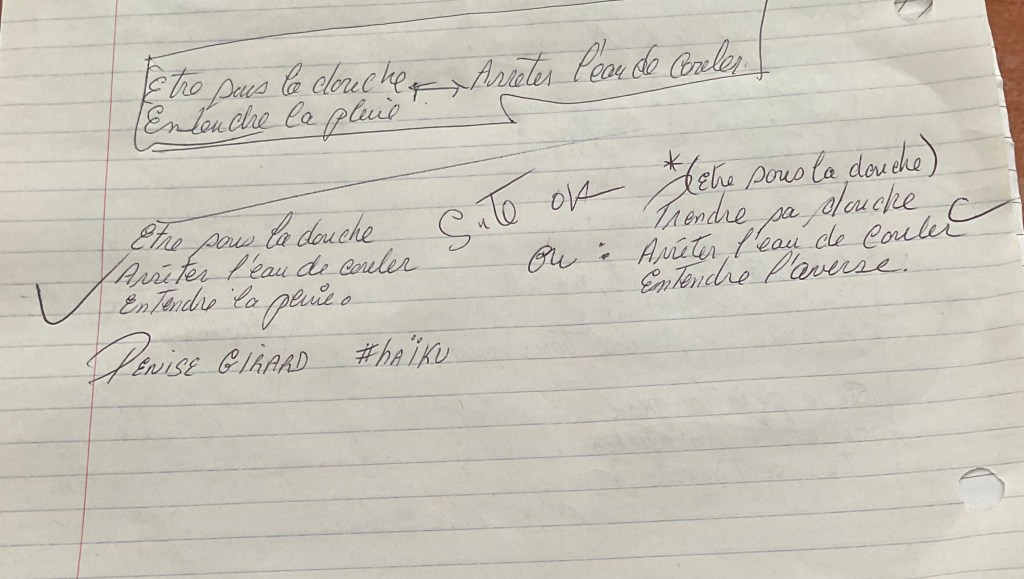 Etre sous la douche ↔ Arrêter l'eau de couler.
Entendre la pluie
Etre sous la douche
Arrêter l'eau de couler
Entendre la pluie.
ou :
*(Etre sous la douche)
Prendre sa douche
Arrêter l'eau de couler
Entendre l'averse.
DENISE GIRARD #hAÏKU